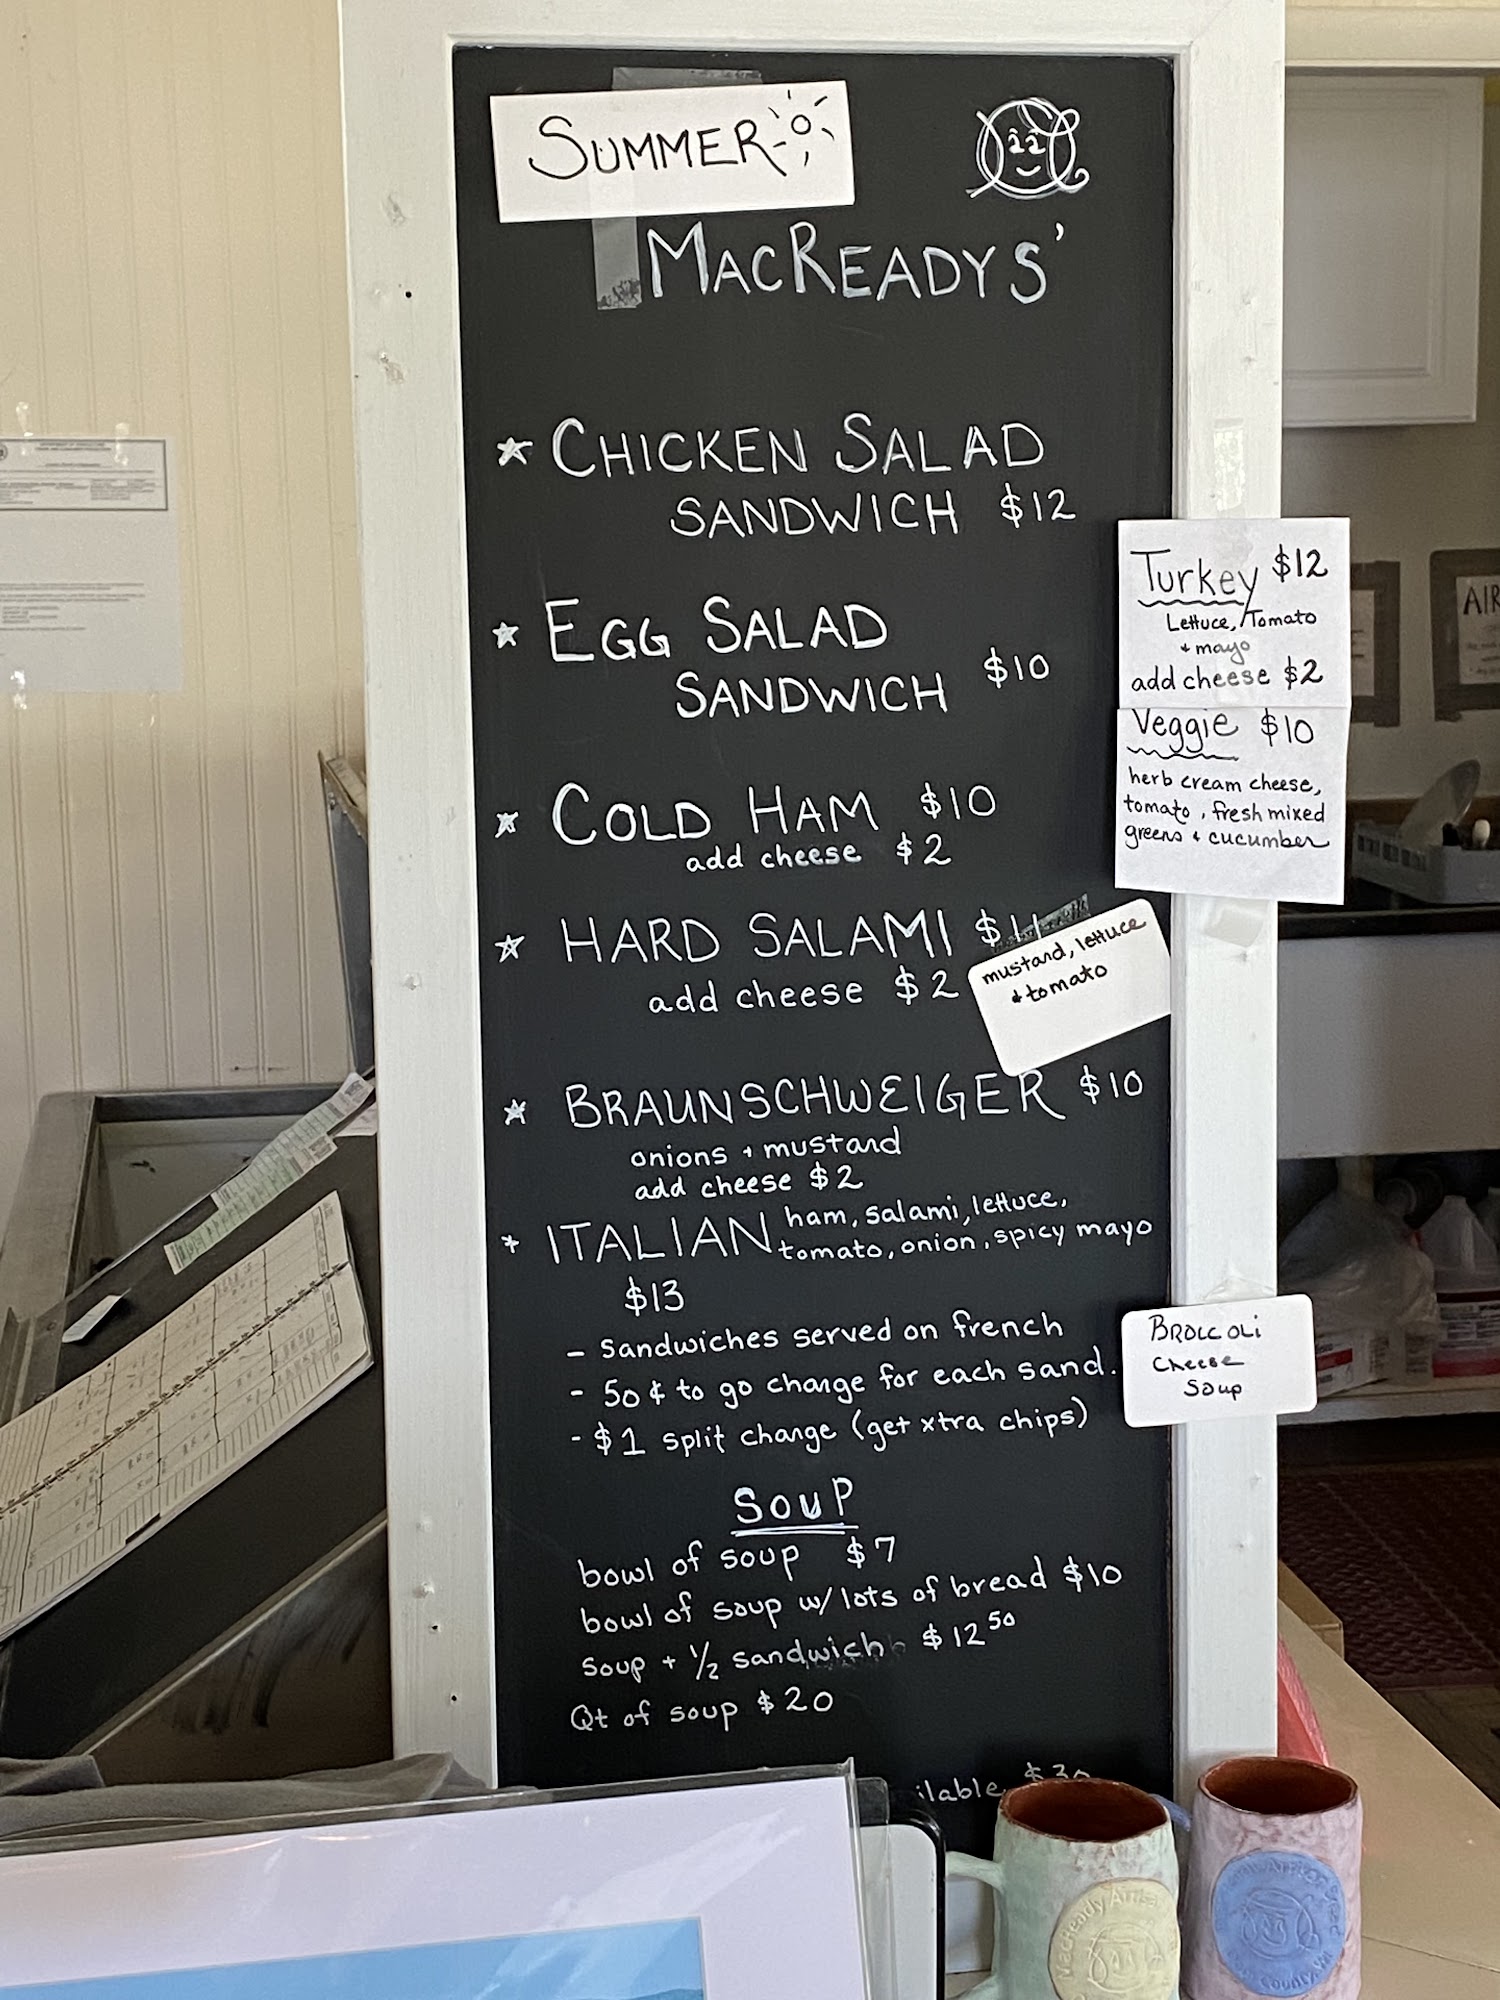 SUMMER
MACREADYS'
CHICKEN SALAD
SANDWICH $12
EGG SALAD
SANDWICH $10
COLD HAM $10
add cheese $2
HARD SALAMI $11
add cheese $2
mustard, lettuce
& tomato
BRAUNSCHWEIGER $10
onions + mustard
add cheese $2
ITALIAN ham, salami, lettuce,
tomato, onion, spicy mayo
$13
- sandwiches served on french
- 50¢ to go change for each sand.
- $1 split change (get xtra chips)
SOUP
bowl of soup $7
bowl of soup w/ lots of bread $10
soup + 1/2 sandwich $12 50
Qt of soup $20
Turkey $12
Lettuce, Tomato
+ mayo
add cheese $2
Veggie $10
herb cream cheese,
tomato, fresh mixed
greens + cucumber
BROCCOLI
Cheese
Soup
AIR